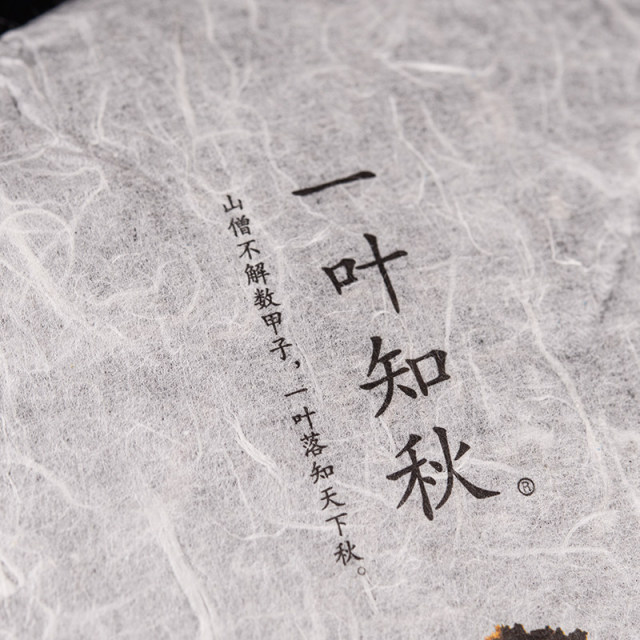 一叶知秋®
山僧不解数甲子，一叶落知天下秋。